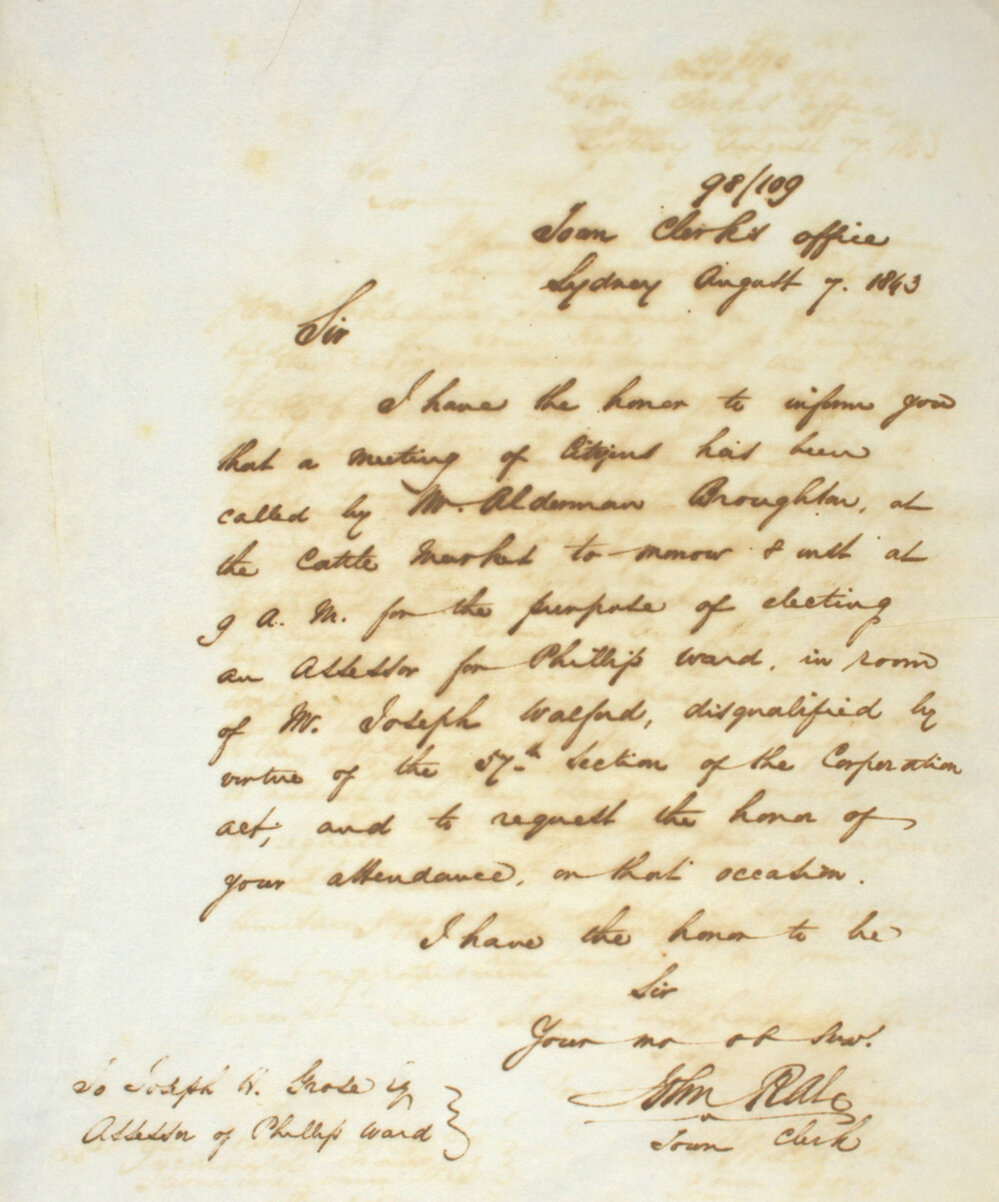 98/109
Town Clerk's office
Sydney August 7. 1843
Sir
I have the honor to inform you
that a meeting of Citizens has been
called by Mr. Alderman Broughton, at
the Cattle Market to-morrow 8 inst at
9 A. M. for the purpose of electing
an Assessor for Phillip Ward, in room
of Mr. Joseph Walford, disqualified by
virtue of the 57th Section of the Corporation
act, and to request the honor of
your attendance, on that occasion.
I have the honor to be
Sir
Your mo ob Serv.
John Rae
Town Clerk
To Joseph H. Grose Esq
Assessor of Phillip Ward